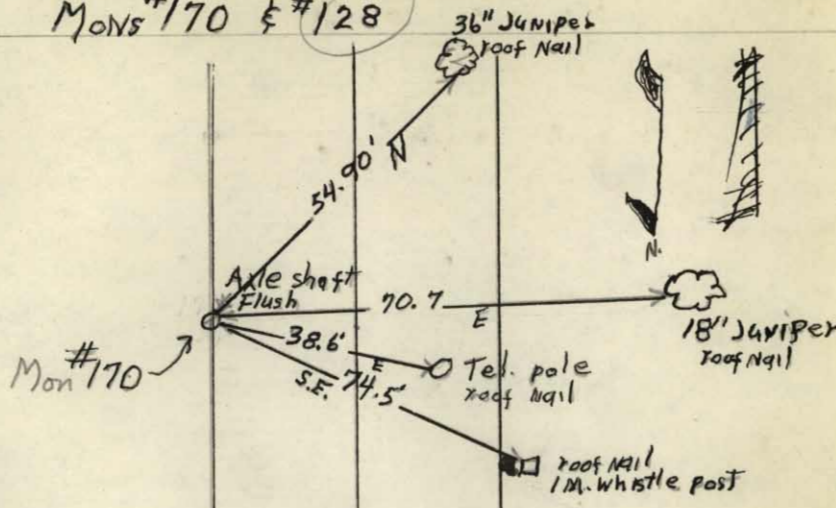 Mons #170 & #128
36" Juniper
roof Nail
54.90'
N
Axle shaft
Flush
70.7
E
N.
18" Juniper
roof Nail
Mon #170
38.6'
E
Tel. pole
roof Nail
S.E. 74.5'
roof Nail
1 M. Whistle post